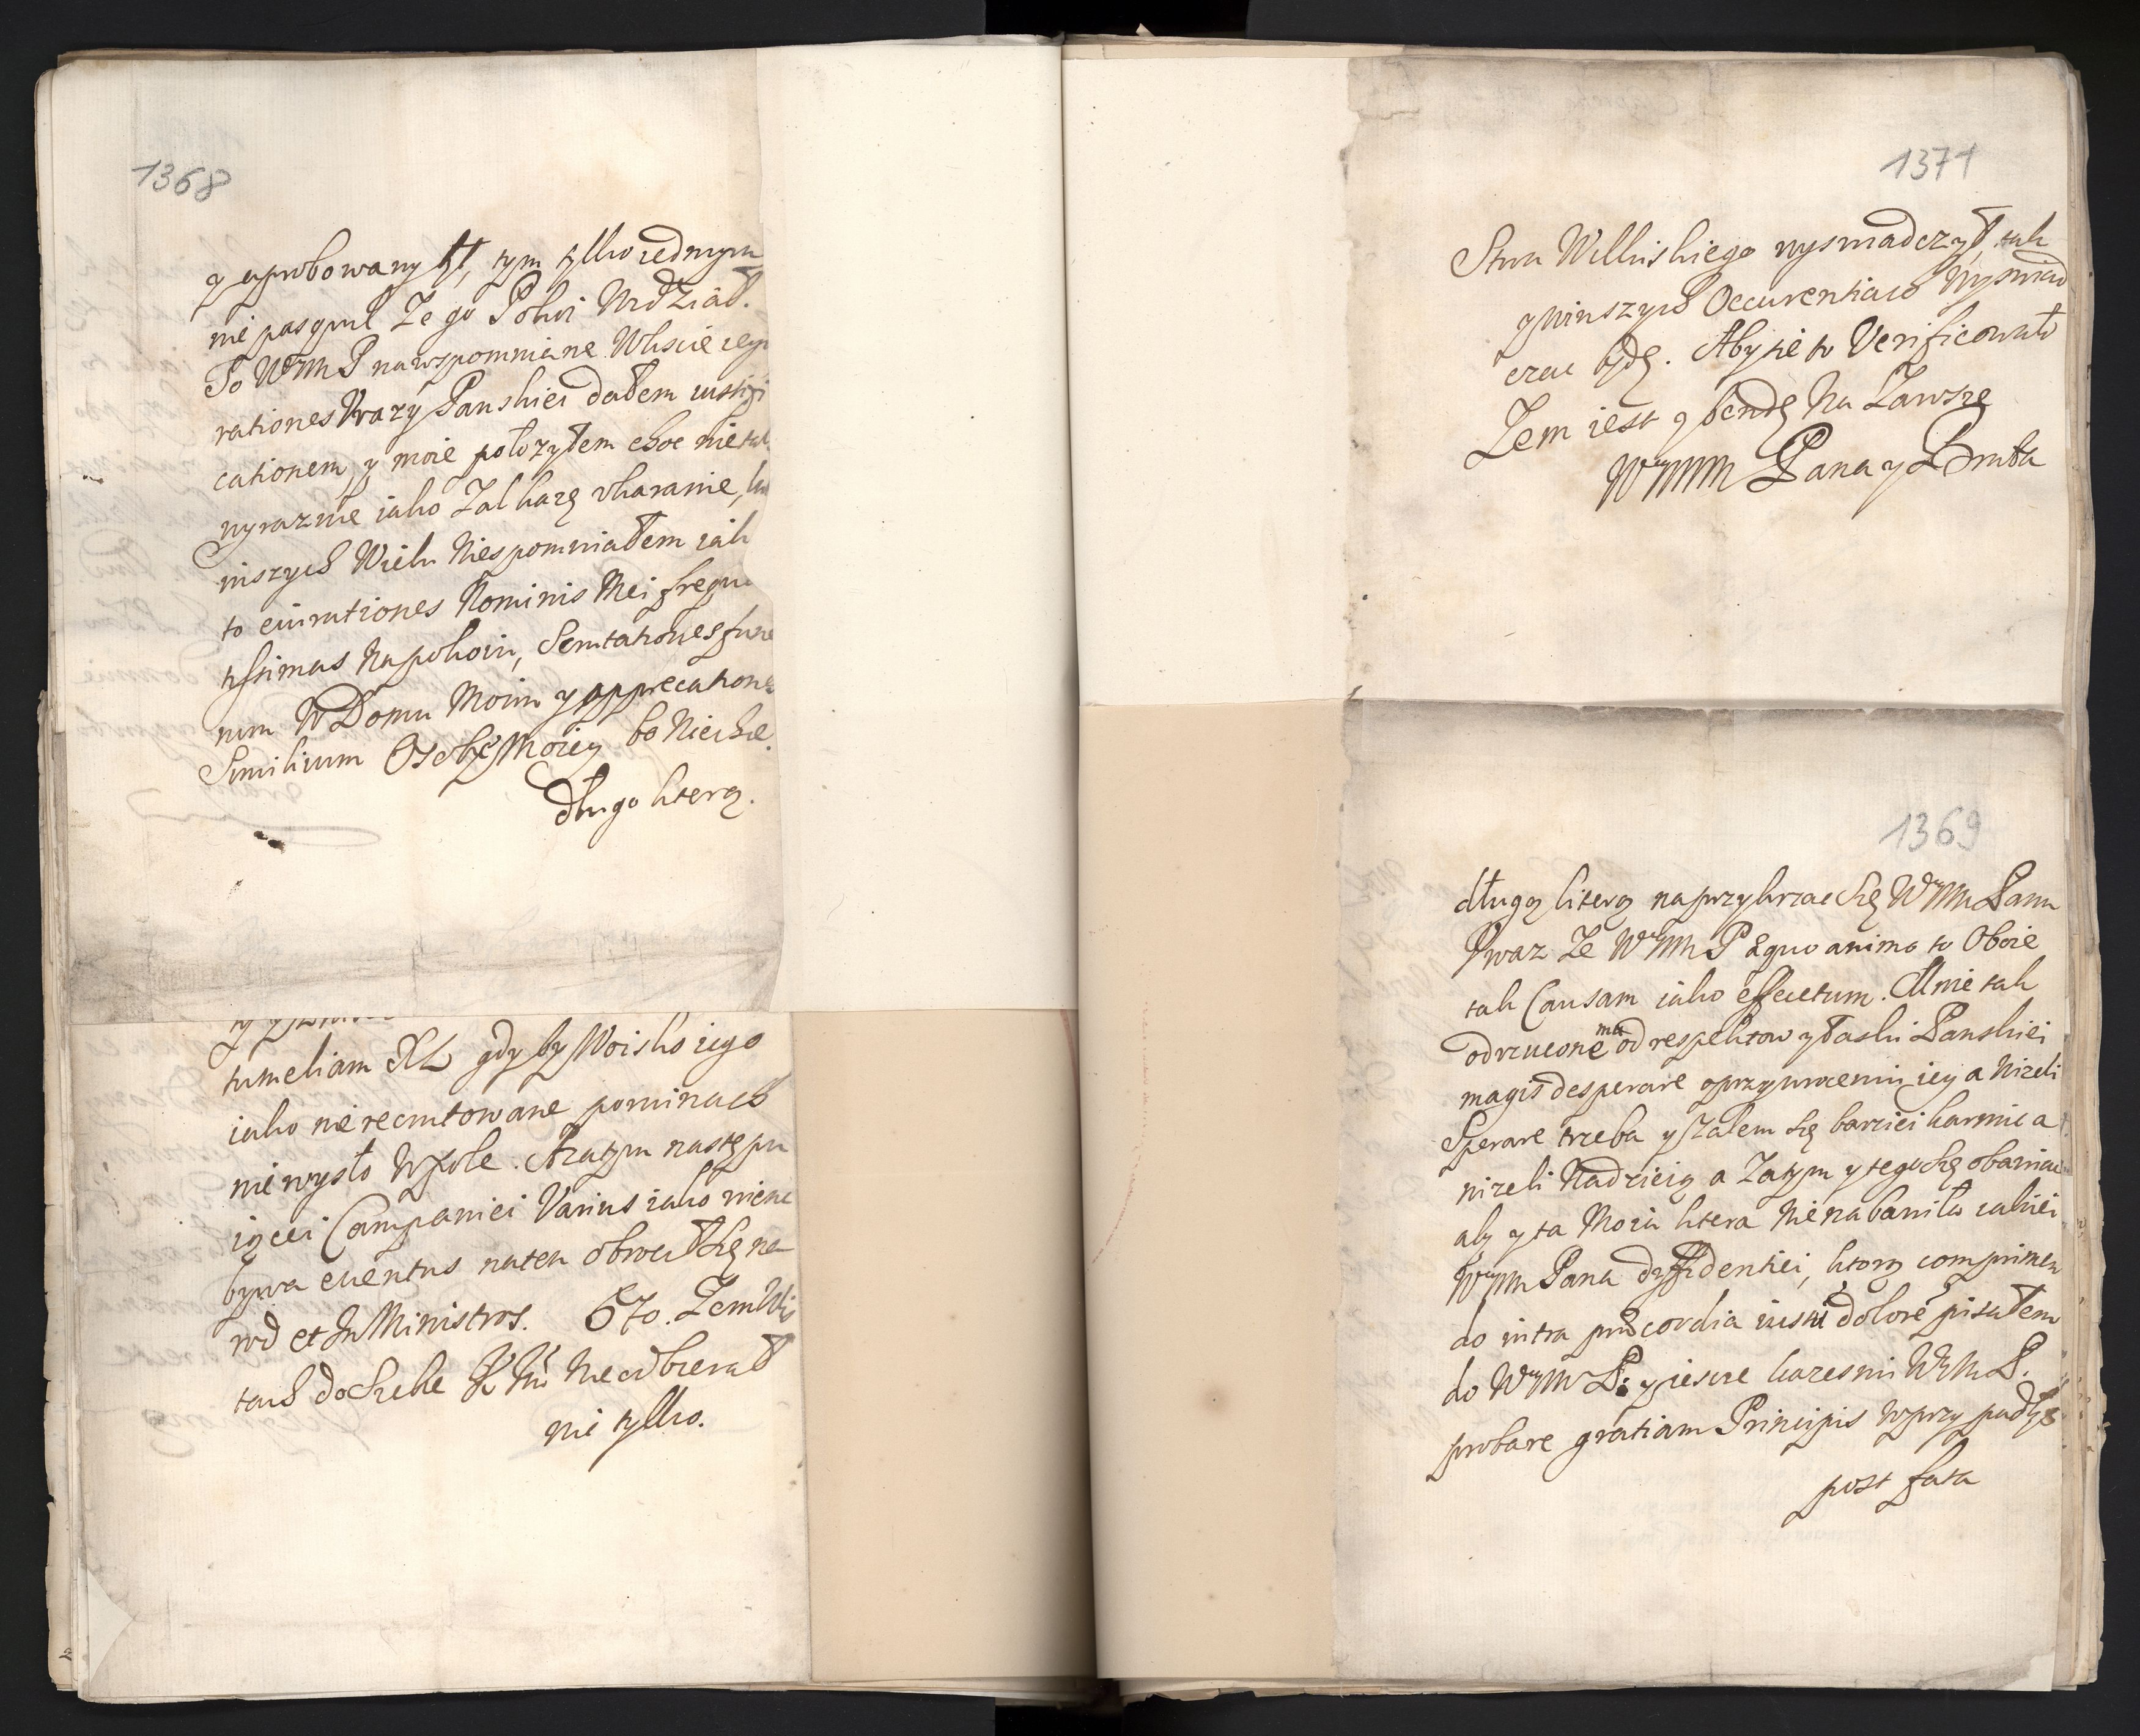 1368
y aprobowany tt, tym tylko iednym
nie pasquil Ze go Pokoi Urdział.
Po WMM P na wspomniane W liscie iego
rationes Urazy Panskiei dałem iustifi
cationem, y moie położyłem choc nie tak
wyraznie iako Zal kazę vkaranie,
inszych Wielu Niespomniałem iak
to
rationes Nominis Mei freque
tissimas Na pokoiu, Sentationes fune
rum W Domu Moim y apprecationes
Similium Osobie Moiey bo Niechce
długo literą.
tumeliam XL gdyby Woisko iego
iako nie recrutowane powinach
nie wyszło W pole. A zatym następu
iącei Campaniei Varius iako niene
bywa euentus naten obrociłsię na
rod et In Ministros. 6to. Zem Wi
tach do Siebie nie odbierał
nie tylko.
1371
Stwa Willinskiego wyswiadczył, tak
y winszych Occurentiach Wyswiad
czac będę. Aby sie to Verificowało
Zem iest y bendę Na Zawsze
WMM Pana y Brata
1369
długą literą naprzykrzac się WMM Panu
Uwaz Ze WMM P æquo animo to Oboie
tak Causam iako effectum. Mnie tak
odrzuconemu od respektow y łaski Panskiei
magis desperare o przywroceniu iey a Nizeli
Sperare trzeba y Zalem się barziei karmic a
nizeli Nadzieią a Zatym y tego się obawiac
aby y ta Moia litera Nie nabawiła iakiei
WMM Pana dyffidentiei, ktorą comprimen
do intra præcordia iusti dolore pisałem
do WMM P: y iescze kazesmi WMM P.
probare gratiam Principis W przypadku
post fata